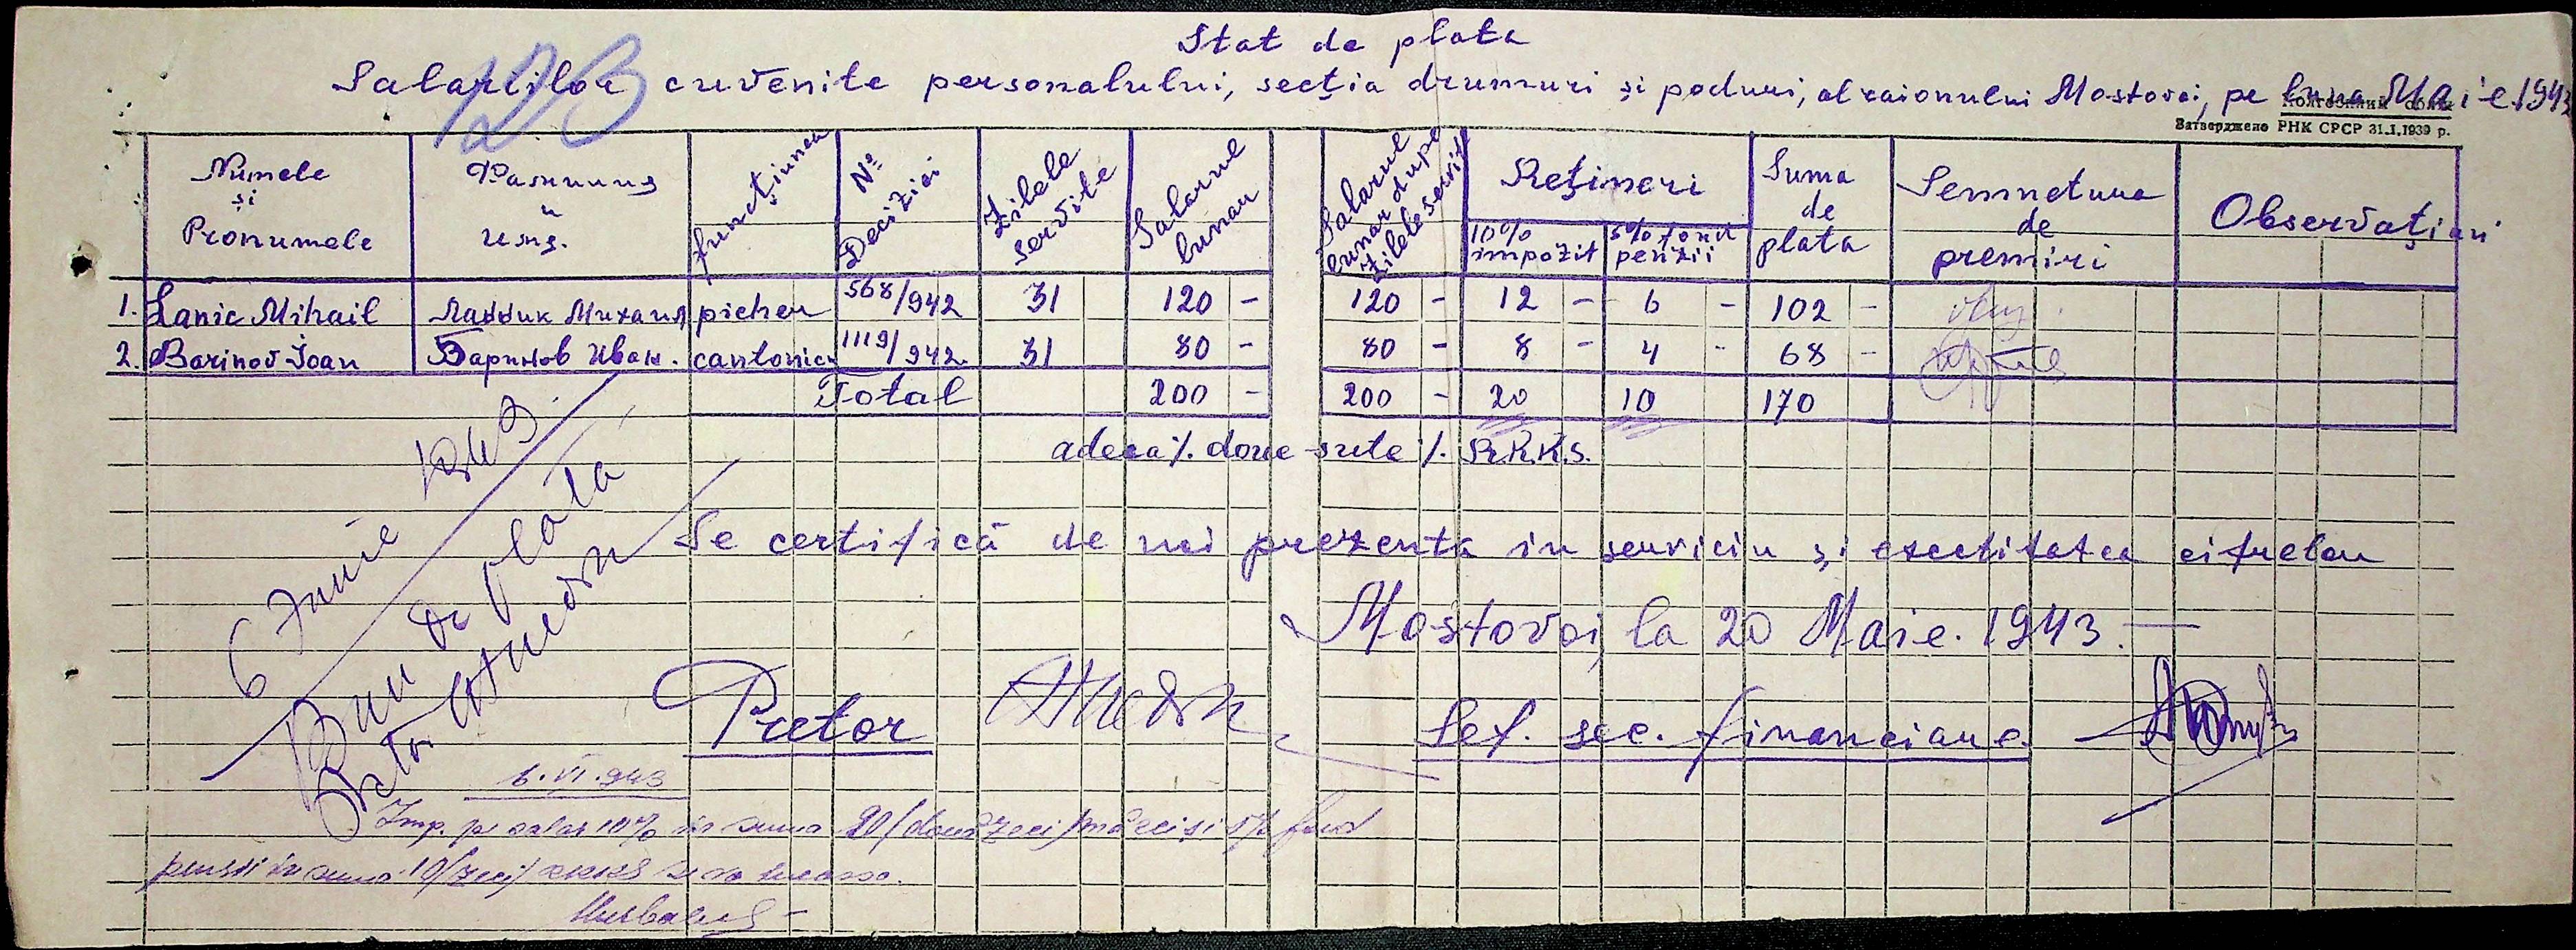 Stat de plata
Salariilor cuvenite personalului, secția drumuri și poduri, al raionului Mostovoi, pe luna Maie 1943
Затверджено РНК СРСР 31.I.1939 р.
Numele și Pronumele | Фамилия и имя. | funcțiunea | № Deciziei | Zilele servite | Salarul lunar | Salarul lunar dupe zilele servite | Rețineri | 10% impozit | 5% fond penzii | Suma de plata | Semnetura de premiri | Observațiuni
1. Lanic Mihail | Михаил | picher | 568/942 | 31 | 120 - | 120 - | 12 - | 6 - | 102 -
2. Barinov Ioan | Баринов Иван. | cantonier | 1119/942. | 31 | 80 - | 80 - | 8 - | 4 - | 68 -
Total | 200 - | 200 - | 20 | 10 | 170
adeca %. doue sute %. R.K.K.S.
Se certifică de noi prezenta in serviciu și exectitatea cifrelor
Mostovoi, la 20 Maie. 1943.
Pretor
Șef. sec. financiare
6 Iunie 1943
Bun de plata
Pretor
6.VI.943
Imp. pe salar 10% in suma 20/douăzeci/ și 5% fond
pensii in suma 10/zeci/